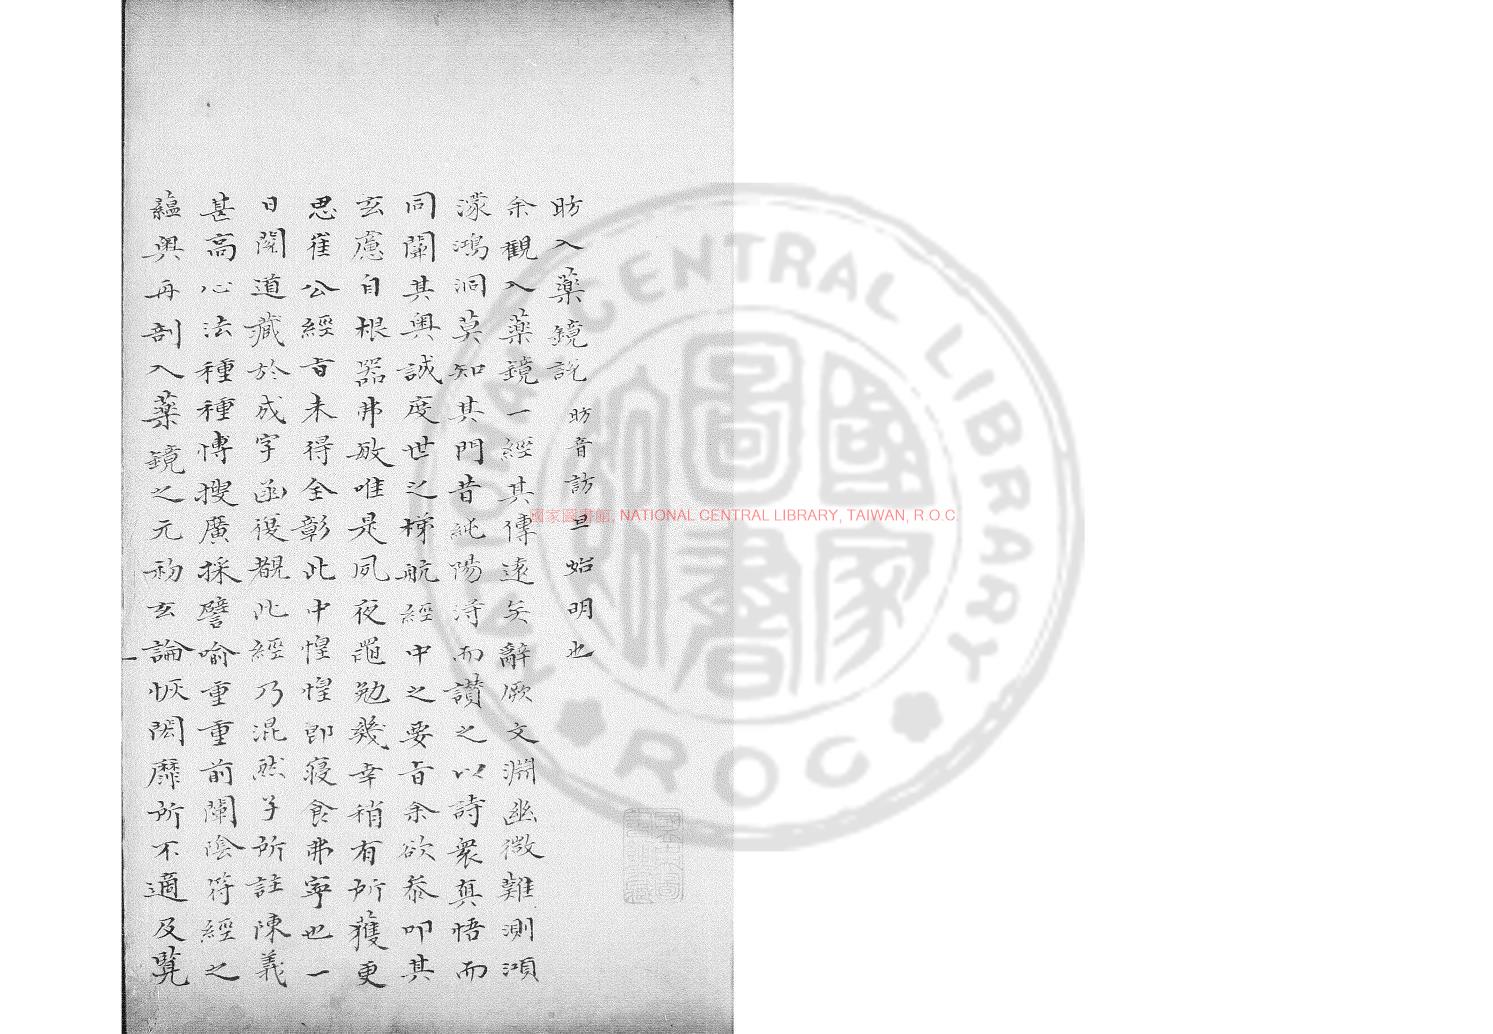 昉入藥鏡說 昉音訪旦始明也
余觀入藥鏡一經其傳遠矣辭厥文淵幽微難測澒
濛鴻洞莫知其門昔純陽淂而讃之以詩衆真悟而
同闡其奧誠度世之梯航經中之要旨余欲叅叩其
玄慮自根器弗敏唯是夙夜黽勉幾幸稍有所獲更
思崔公經旨未得全彰此中惶惶即寢食弗寧也一
日閱道藏於成字函復覩此經乃混然子所註陳義
甚高心法種種博搜廣採譬喻重重前闡陰符經之
蘊奧再剖入藥鏡之元初玄論恢閎靡所不適及覧
國家圖書館, NATIONAL CENTRAL LIBRARY, TAIWAN, R.O.C.
NATIONAL CENTRAL LIBRARY
ROC
國家圖書